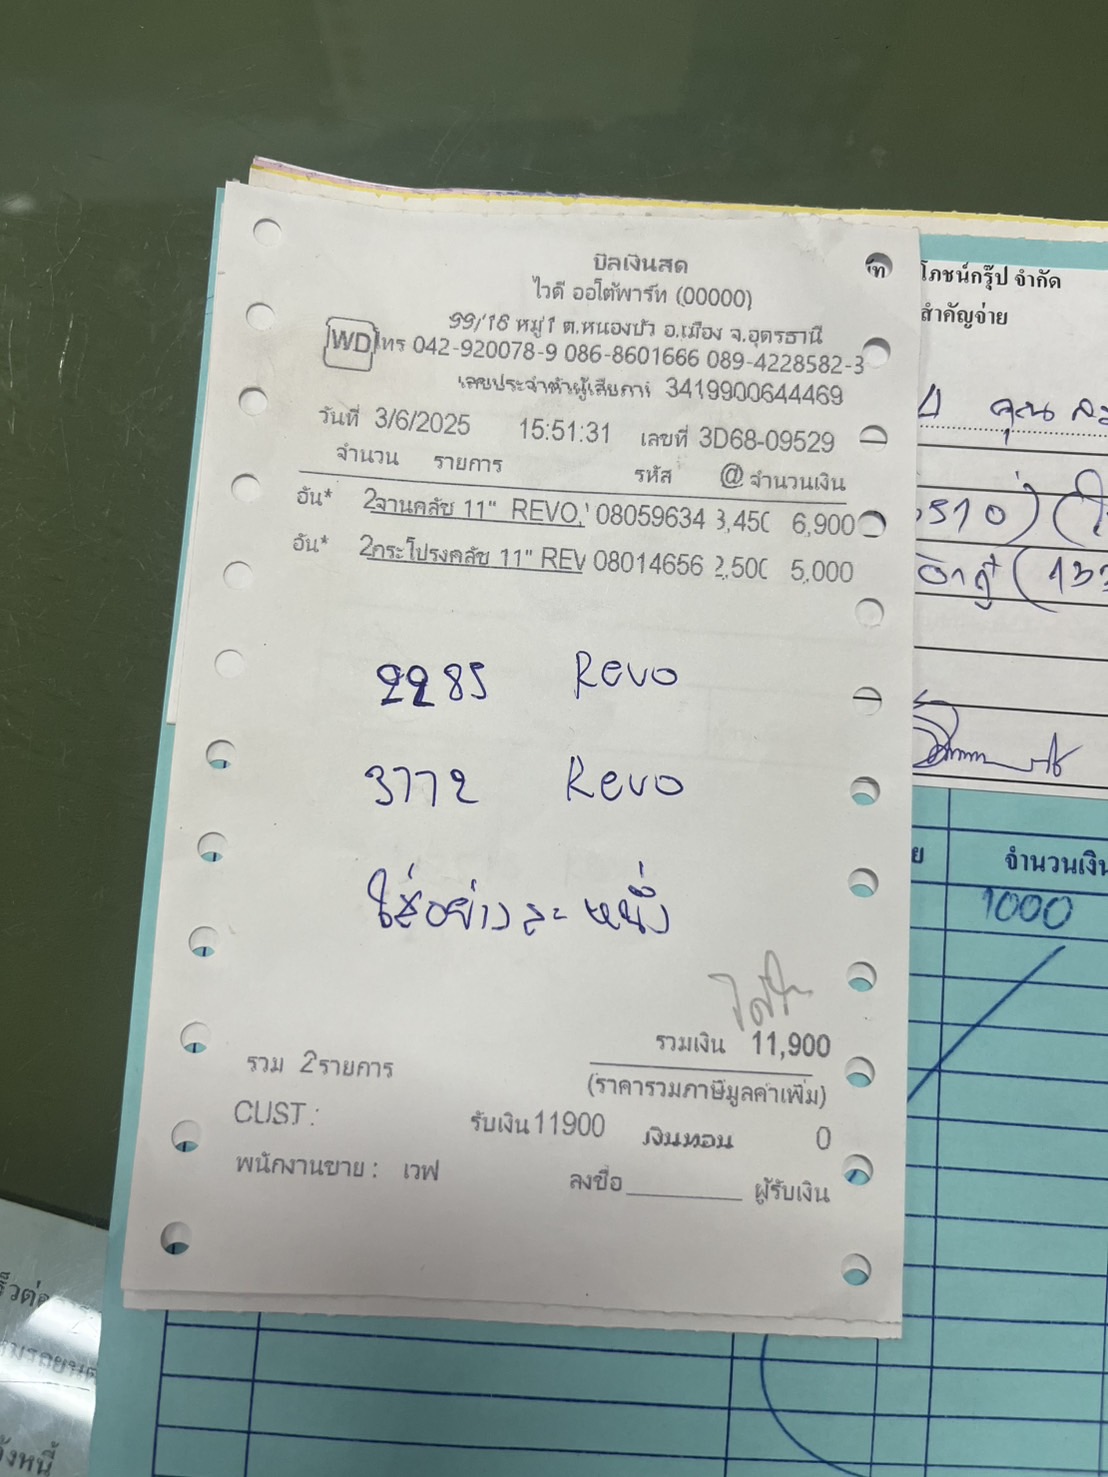 บิลเงินสด
ไวดี ออโต้พาร์ท (00000)
99/16 หมู่1 ต.หนองบัว อ.เมือง จ.อุดรธานี
WD โทร 042-920078-9 086-8601666 089-4228582-3
เลขประจำตัวผู้เสียภาษี 3419900644469
วันที่ 3/6/2025 15:51:31 เลขที่ 3D68-09529
จำนวน รายการ รหัส @ จำนวนเงิน
อัน* 2จานคลัช 11" REVO,' 08059634 3,450 6,900
อัน* 2กระโปรงคลัช 11" REV 08014656 2,500 5,000
2285 Revo
3772 Revo
ใส่อย่างละหนึ่ง
รวมเงิน 11,900
รวม 2รายการ (ราคารวมภาษีมูลค่าเพิ่ม)
CUST: รับเงิน11900 เงินทอน 0
พนักงานขาย: เวฟ ลงชื่อ________ผู้รับเงิน
โภชน์กรุ๊ป จำกัด
สำคัญจ่าย
คุณ
ย จำนวนเงิน
1000